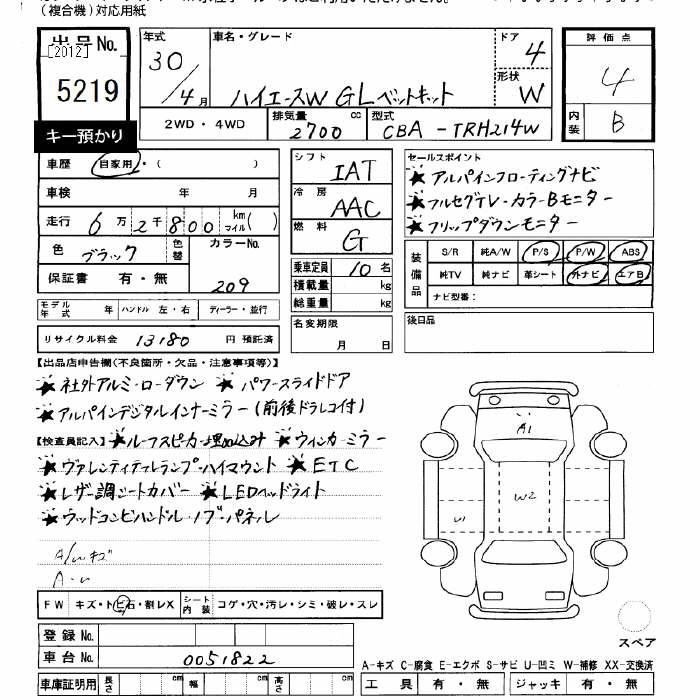 (複合機)対応用紙
出品No. 年式 車名・グレード ドア 評価点
[2012] 30 4 4
5219 4月 ハイエースW GLベットキット 形状 W
キー預かり 2WD・4WD 排気量 2700 cc 型式 CBA-TRH214W 内装 B
車歴 自家用・( ) シフト IAT セールスポイント
車検 年 月 冷房 AAC ★アルパインフローティングナビ
走行 6万2千800 km マイル( ) 燃料 G ★フルセグTV・カラーBモニター
★フリップダウンモニター
色 ブラック 色替 カラーNo. 209 乗車定員 10名 装備品 S/R 純A/W P/S P/W ABS
保証書 有・無 積載量 kg 純TV 純ナビ 革シート 外ナビ エアB
モデル年式 年 ハンドル 左・右 ディーラー・並行 総重量 kg ナビ型番:
リサイクル料金 13180 円 預託済 名変期限 月 日 後日品
【出品店申告欄(不良箇所・欠品・注意事項等)】
★社外アルミ・ローダウン ★パワースライドドア
★アルパインデジタルインナーミラー(前後ドラレコ付)
【検査員記入】 ★ルーフスピーカー埋め込み ★ウィンカーミラー
★ヴァレンティテールランプ・ハイマウント ★ETC
★レザー調シートカバー ★LEDヘッドライト
★ウッドコンビハンドル・ノブ・パネル
A/wキズ
A・u
A1
W2
U1
FW キズ・トビ石・割レX シート内装 コゲ・穴・汚レ・シミ・破レ・スレ
登録No.
スペア
車台No. 0051822
A-キズ C-腐食 E-エクボ S-サビ U-凹ミ W-補修 XX-交換済
車庫証明用 長さ cm 幅 cm 高さ cm 工具 有・無 ジャッキ 有・無